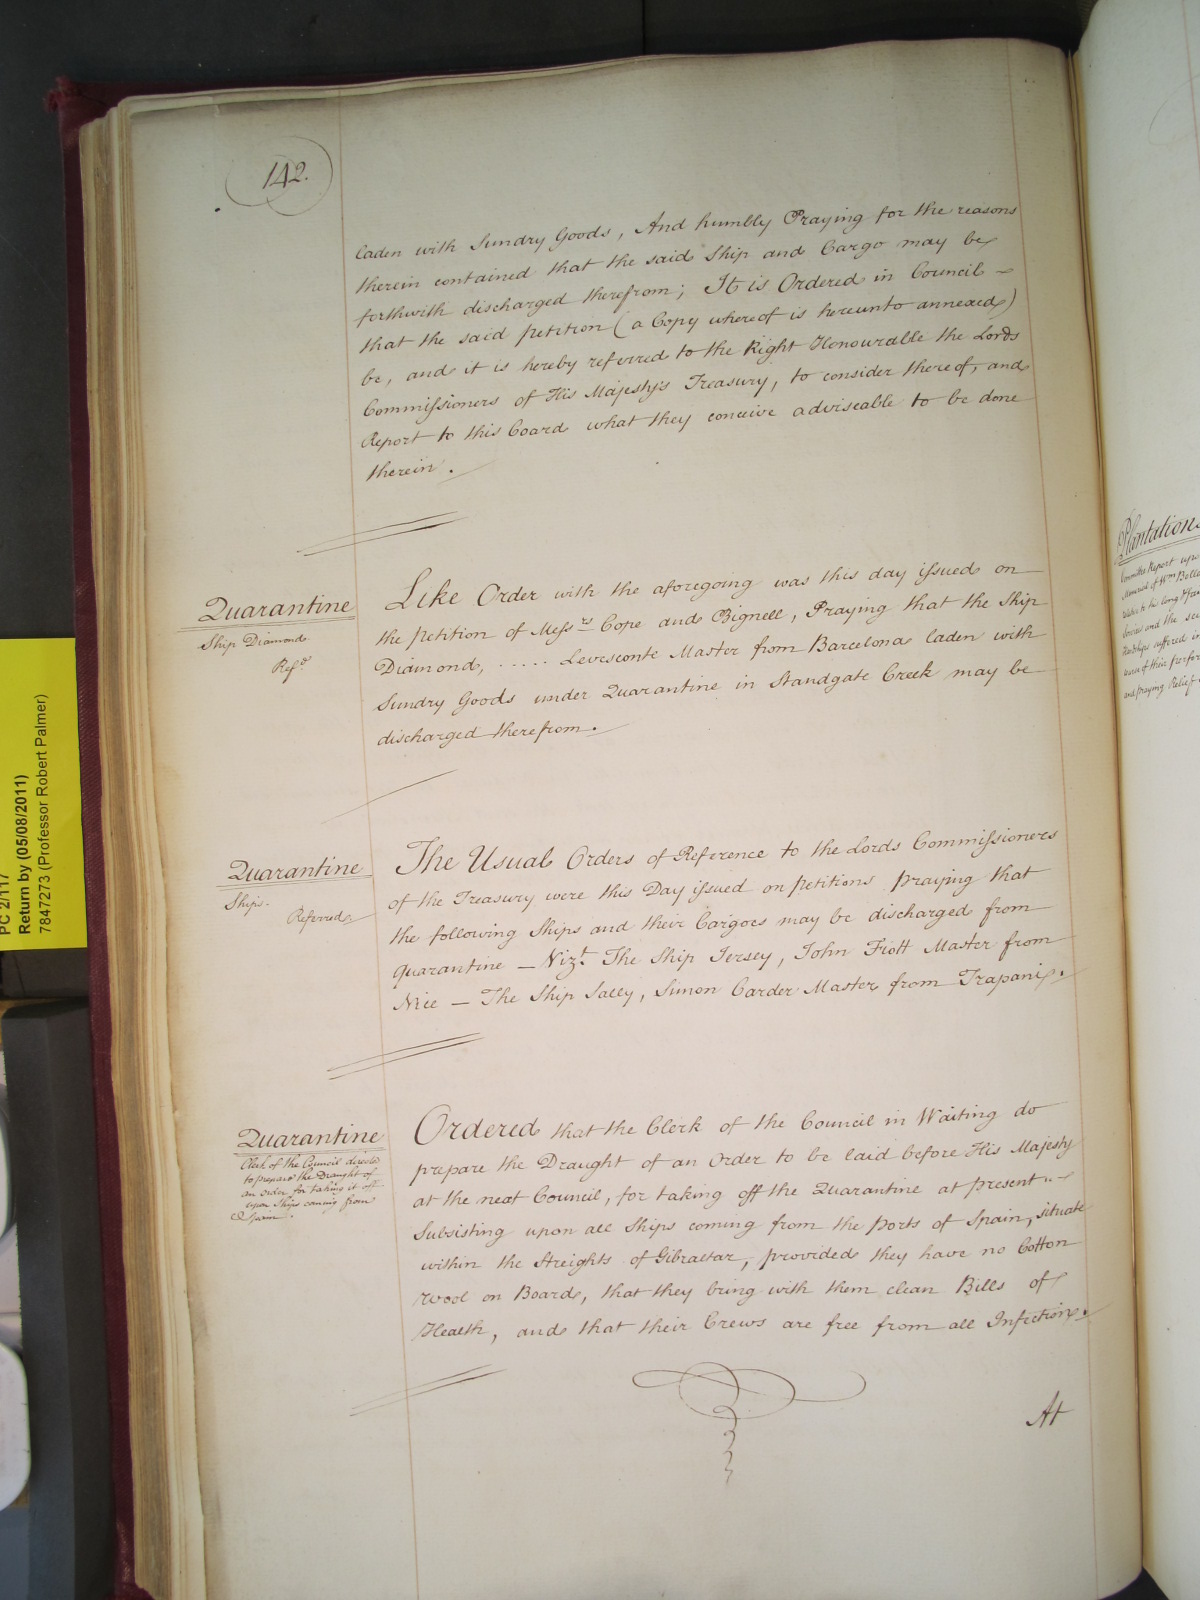 142.
laden with Sundry Goods, And humbly Praying for the reasons
therein contained that the said Ship and Cargo may be
forthwith discharged therefrom; It is Ordered in Council –
that the said petition (a Copy whereof is hereunto annexed)
be, and it is hereby referred to the Right Honourable the Lords
Commissioners of His Majesty's Treasury, to consider thereof, and
Report to this Board what they conceive adviseable to be done
therein.
Quarantine
Ship Diamond
Refd.
Like Order with the aforegoing was this day issued on
the petition of Messrs Cope and Bignell, Praying that the Ship
Diamond, ..... Levesconte Master from Barcelona laden with
Sundry Goods under Quarantine in Standgate Creek may be
discharged therefrom.
Quarantine
Ships.
Referred
The Usual Orders of Reference to the Lords Commissioners
of the Treasury were this Day issued on petitions praying that
the following Ships and their Cargoes may be discharged from
Quarantine – Vizt. The Ship Jersey, John Fiott Master from
Nice – The Ship Sally, Simon Carder Master from Trapani.
Quarantine
Clerk of the Council directed
to prepare the Draught of
an order for taking it off
upon Ships coming from
Spain.
Ordered that the Clerk of the Council in Waiting do
prepare the Draught of an Order to be laid before His Majesty
at the next Council, for taking off the Quarantine at present
Subsisting upon all Ships coming from the Ports of Spain, situate
within the Streights of Gibraltar, provided they have no Cotton
Wool on Board, that they bring with them clean Bills of
Health, and that their Crews are free from all Infection.
At
PC 2/117
Return by (05/08/2011)
7847273 (Professor Robert Palmer)
Plantations
Committee Report upon
Memorial of Wm Bolla